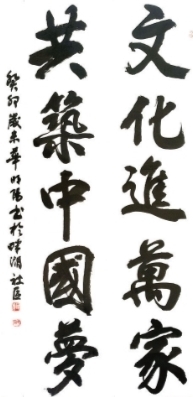 文化進萬家
共築中國夢
癸卯歲末華明陽书於味湖社区